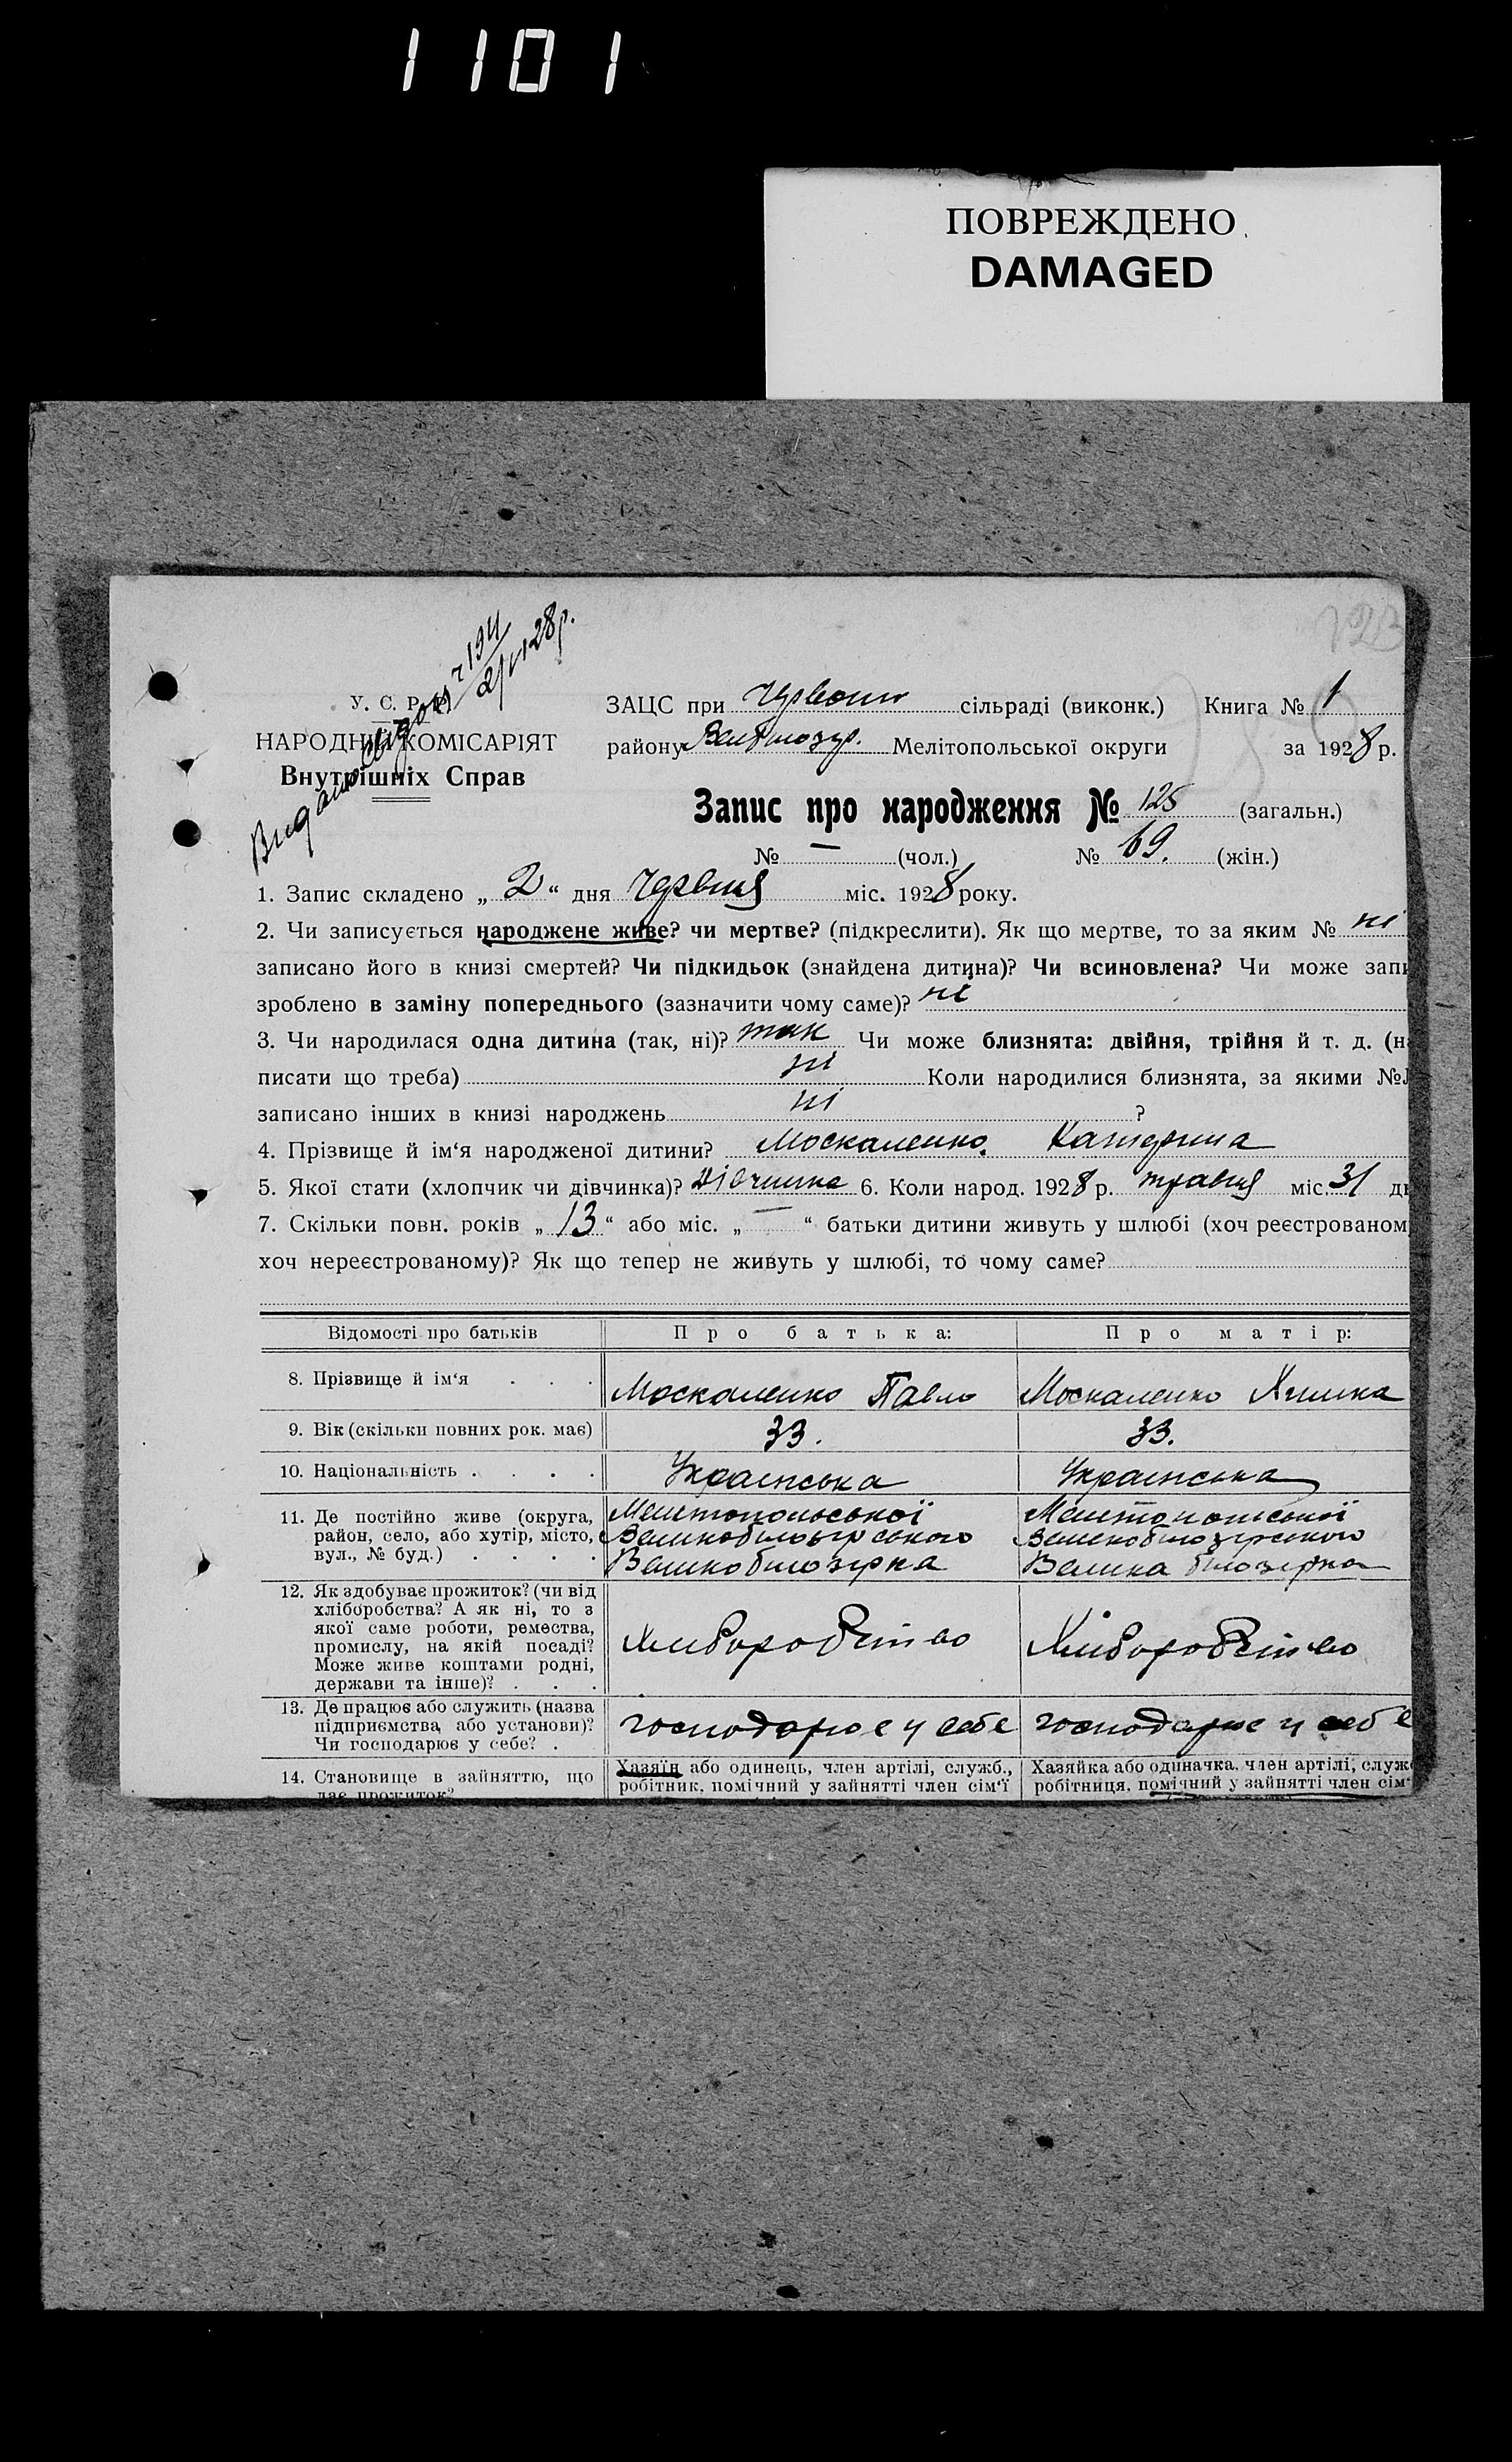 1101
ПОВРЕЖДЕНО
DAMAGED
194
2/VI 28 р.
У. С. Р. Р.
НАРОДНИЙ КОМІСАРІЯТ
Внутрішніх Справ
ЗАЦС при Червон сільраді (виконк.) Книга № 1
району Мелітопольської округи за 1928 р.
Запис про народження № 125 (загальн.)
№ — (чол.) № 69. (жін.)
1. Запис складено „ 2 “ дня Червня міс. 1928 року.
2. Чи записується народжене живе? чи мертве? (підкреслити). Як що мертве, то за яким № ні
записано його в книзі смертей? Чи підкидьок (знайдена дитина)? Чи всиновлена? Чи може запи
зроблено в заміну попереднього (зазначити чому саме)? ні
3. Чи народилася одна дитина (так, ні)? так Чи може близнята: двійня, трійня й т. д. (на
писати що треба) ні Коли народилися близнята, за якими №
записано інших в книзі народжень ні ?
4. Прізвище й ім‘я народженої дитини? Москаленко Катерина
5. Якої стати (хлопчик чи дівчинка)? Дівчинка 6. Коли народ. 1928 р. травня міс. 31 д
7. Скільки повн. років „ 13 “ або міс. „ — “ батьки дитини живуть у шлюбі (хоч реєстрованом
хоч нереєстрованому)? Як що тепер не живуть у шлюбі, то чому саме?
Відомості про батьків Про батька: Про матір:
8. Прізвище й ім‘я . . . Москаленко Павло Москаленко
9. Вік (скільки повних рок. має) 33. 33.
10. Національність . . . . Українська Українська
11. Де постійно живе (округа, Мелітопольської Мелітопольської
район, село, або хутір, місто, Великобілозірського Великобілозірського
вул., № буд.) . . . . Великобілозірка Велика білозірка
12. Як здобуває прожиток? (чи від
хліборобства? А як ні, то з
якої саме роботи, ремества,
промислу, на якій посаді? Хліборобство Хліборобство
Може живе коштами родні,
держави та інше)? . . .
13. Де працює або служить (назва
підприємства, або установи)? господарює у себе господарює у себе
Чи господарює у себе? .
14. Становище в зайняттю, що Хазяїн або одинець, член артілі, служб., Хазяйка або одиначка, член артілі, служ
дає прожиток? робітник, помічний у зайнятті член сім‘ї робітниця, помічний у зайнятті член сім‘